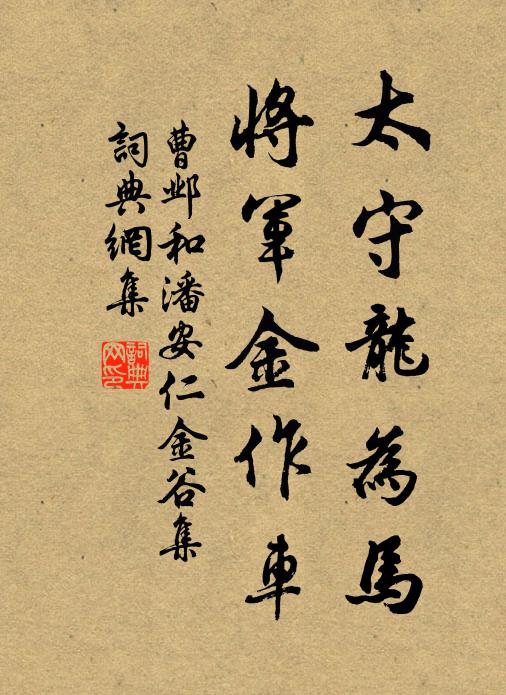 太守龍為馬
將軍金作車
曹邺和潘安仁金谷集
詞典網集
詞典網印